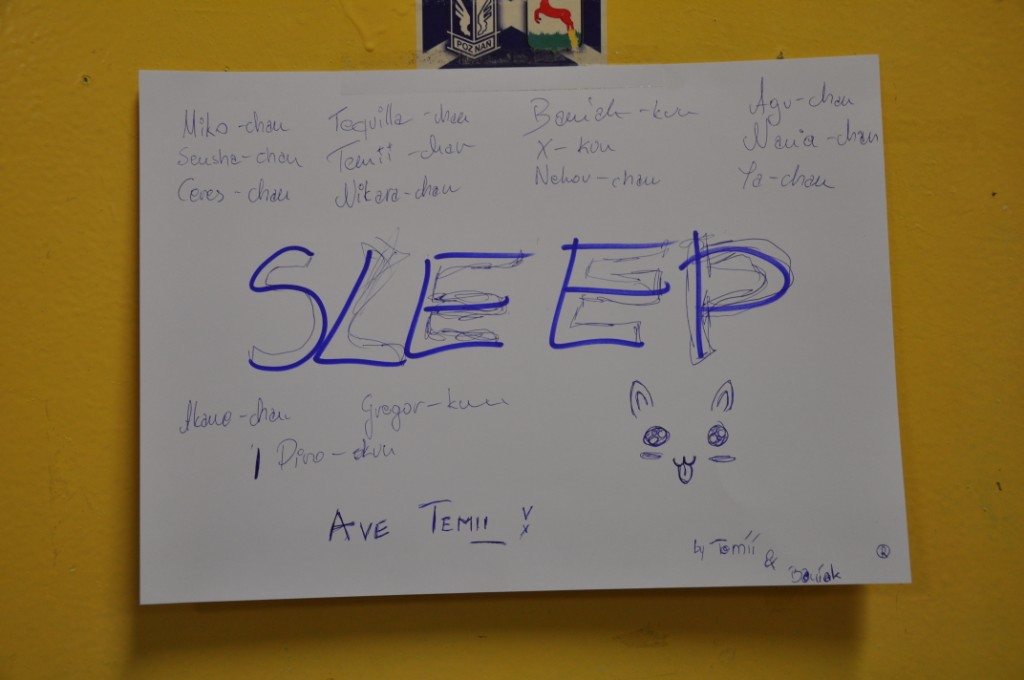 POZNAŃ
Miko-chan Tequilla-chan Baniak-kun Agu-chan
Sensha-chan Temii-chan X-kun Nania-chan
Ceres-chan Nikara-chan Nekov-chan Ya-chan
SLEEP
Akane-chan Gregor-kun
Dino-kun
AVE TEMII
by Temii
& Baniak
®